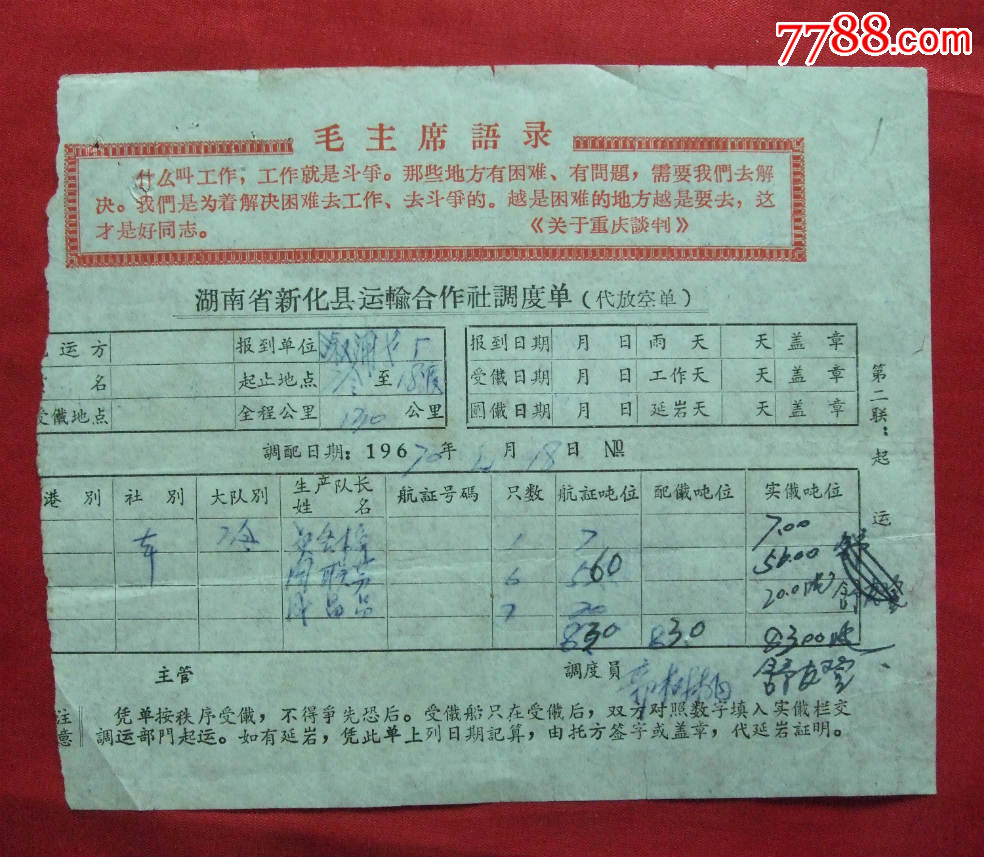 7788.com
毛主席語录
什么叫工作，工作就是斗爭。那些地方有困难、有問題，需要我們去解
决。我們是为着解决困难去工作、去斗爭的。越是困难的地方越是要去，这
才是好同志。 《关于重庆談判》
湖南省新化县运輸合作社調度单（代放空单）
运方 报到单位 报到日期 月 日 雨天 天 盖章
名 起止地点 冷 至 受儎日期 月 日 工作天 天 盖章
受儎地点 全程公里 公里 圓儎日期 月 日 延岩天 天 盖章
第二联：起运
調配日期：196 70年 月 18日 №
港别 社别 大队别 生产队长姓名 航証号碼 只数 航証吨位 配儎吨位 实儎吨位
车 冷 1 7 7.00
6 560 56.00
7 20 20.0
830 830 8300
主管 調度員
注意
凭单按秩序受儎，不得爭先恐后。受儎船只在受儎后，双方对照数字填入实儎栏交
調运部門起运。如有延岩，凭此单上列日期記算，由托方签字或盖章，代延岩証明。